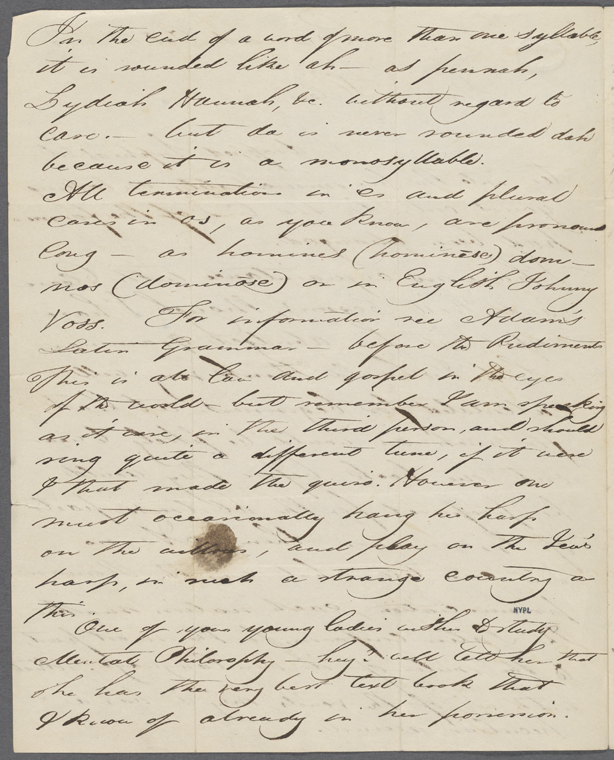 In the end of a word of more than one syllable,
it is sounded like ah — as pennah,
Lydiah Hannah, &c. without regard to
case. — but da is never sounded dah
because it is a monosyllable.
All terminations in es and plural
cases in os, as you know, are pronoun
long — as homines (hominese) domi-
nos (dominose) or in English Johnny
Voss. For information see Adam's
Latin Grammar — before the Rudiments
This is all law and gospel in the eyes
of the world — but remember I am speaking
as it were, in the third person, and should
sing quite a different tune, if it were
I that made the quire. However one
must occasionally hang his harp
on the willows, and play on the Jew's
harp, in such a strange country as
this.
NYPL
One of your young ladies wishes to study
Mental Philosophy — hey? well tell her that
she has the very best text book that
I know of already in her possession.